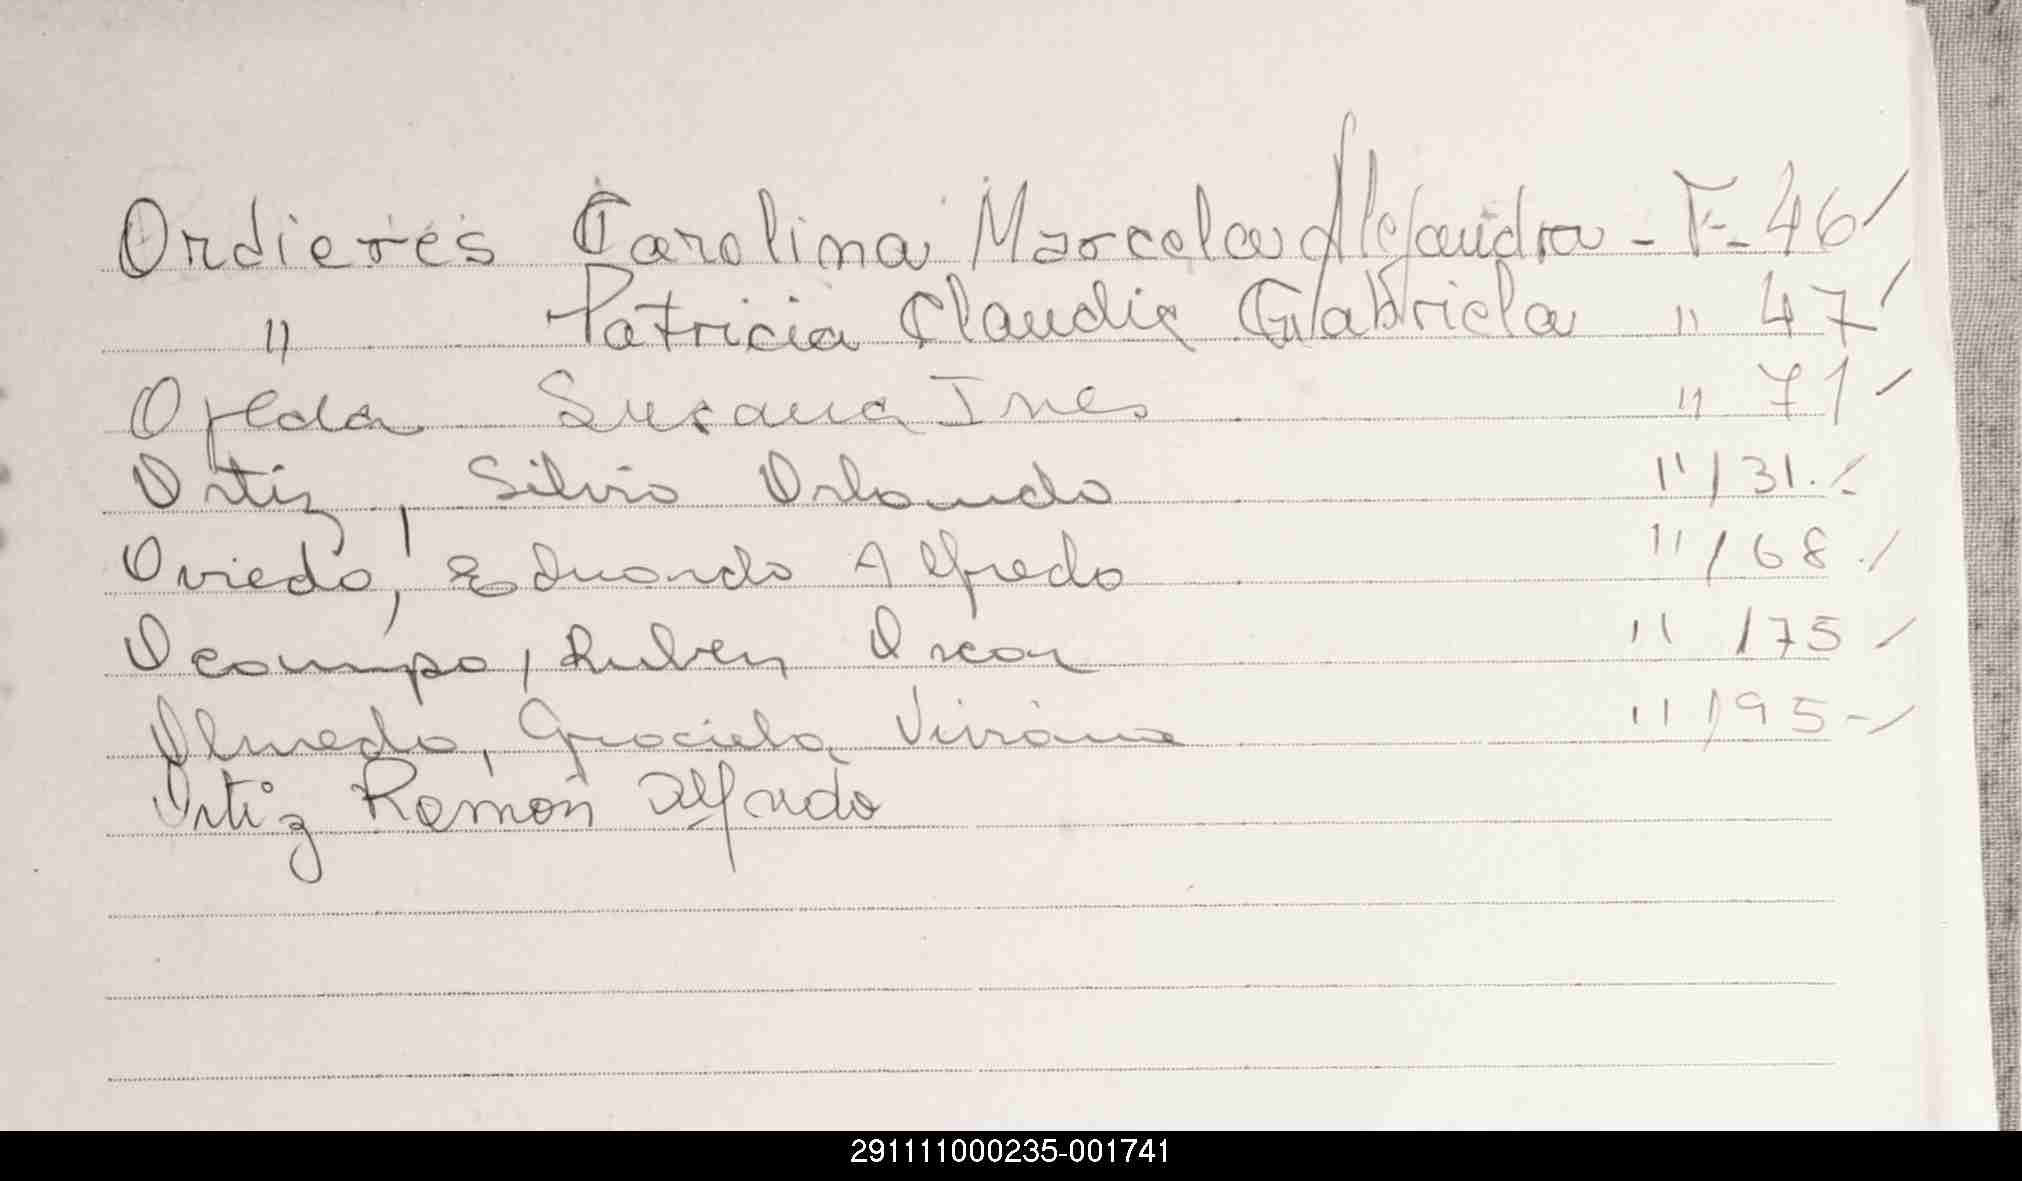 Ordieres Carolina Marcela Alejandra - F - 46 /
" Patricia Claudia Gabriela " 47 /
Ojeda Susana Ines " 71 /
Ortiz, Silvio Orlando " / 31. /
Oviedo, Eduardo Alfredo " / 68 . /
Ocampo, Ruben Oscar " / 75 /
Olmedo, Graciela Viviana " / 95 - /
Ortiz Ramón Alfredo
291111000235-001741